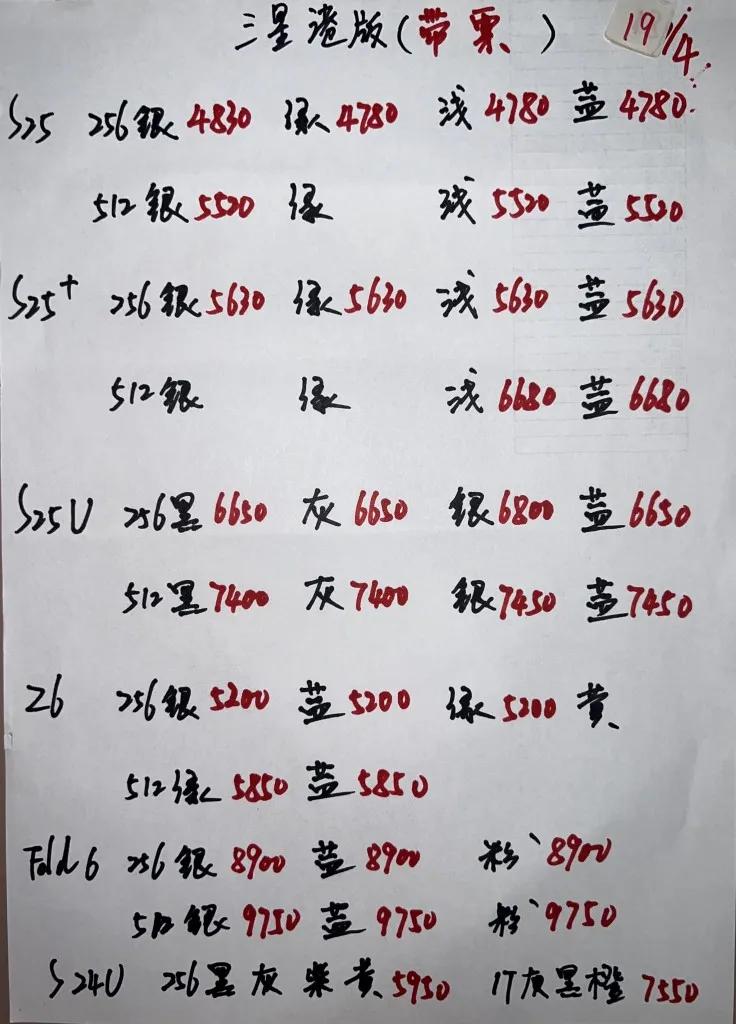 三星港版(带票) 19/4
S25 256銀4830 绿4780 浅4780 蓝4780
512銀5520 绿 浅5520 蓝5520
S25+ 256銀5630 绿5630 浅5630 蓝5630
512銀 绿 浅6680 蓝6680
S25U 256黑6650 灰6650 銀6800 蓝6650
512黑7400 灰7400 銀7450 蓝7450
Z6 256銀5200 蓝5200 绿5200 黄
512绿5850 蓝5850
Fold6 256銀8900 蓝8900 粉8900
512銀9750 蓝9750 粉9750
S24U 256黑灰紫黄5950 1T灰黑橙7550